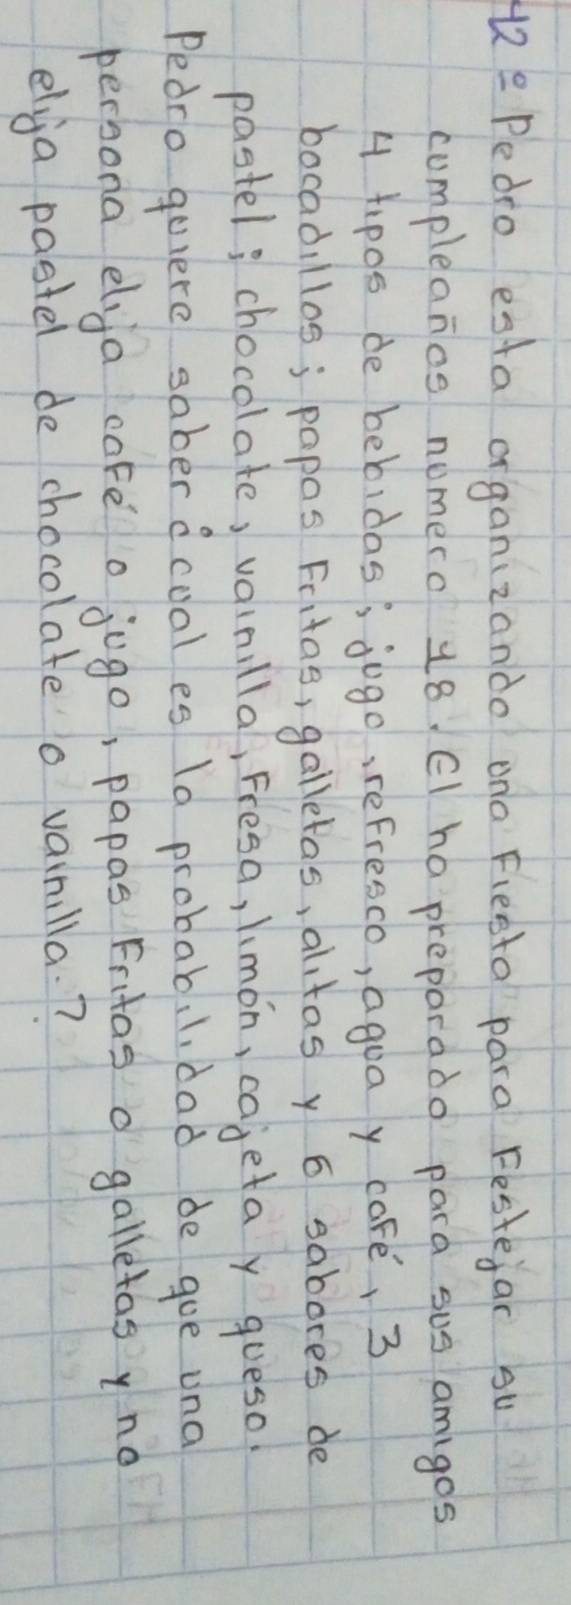 42º Pedro esta organizando una Fiesta para Festejar su
cumpleaños numero 18. El ha preparado para sus amigos
4 tipos de bebidas; jugo, reFresco, agua y caFé, 3
bocadillos; papas Fritas, galletas, alitas y 6 sabores de
pastel; chocolate, vainilla, Fresa, limón, cajeta y queso.
Pedro quiere saber ¿cual es la probabilidad de que una
persona elija caFé o jugo, papas Fritas o galletas y no
elija pastel de chocolate o vainilla.?